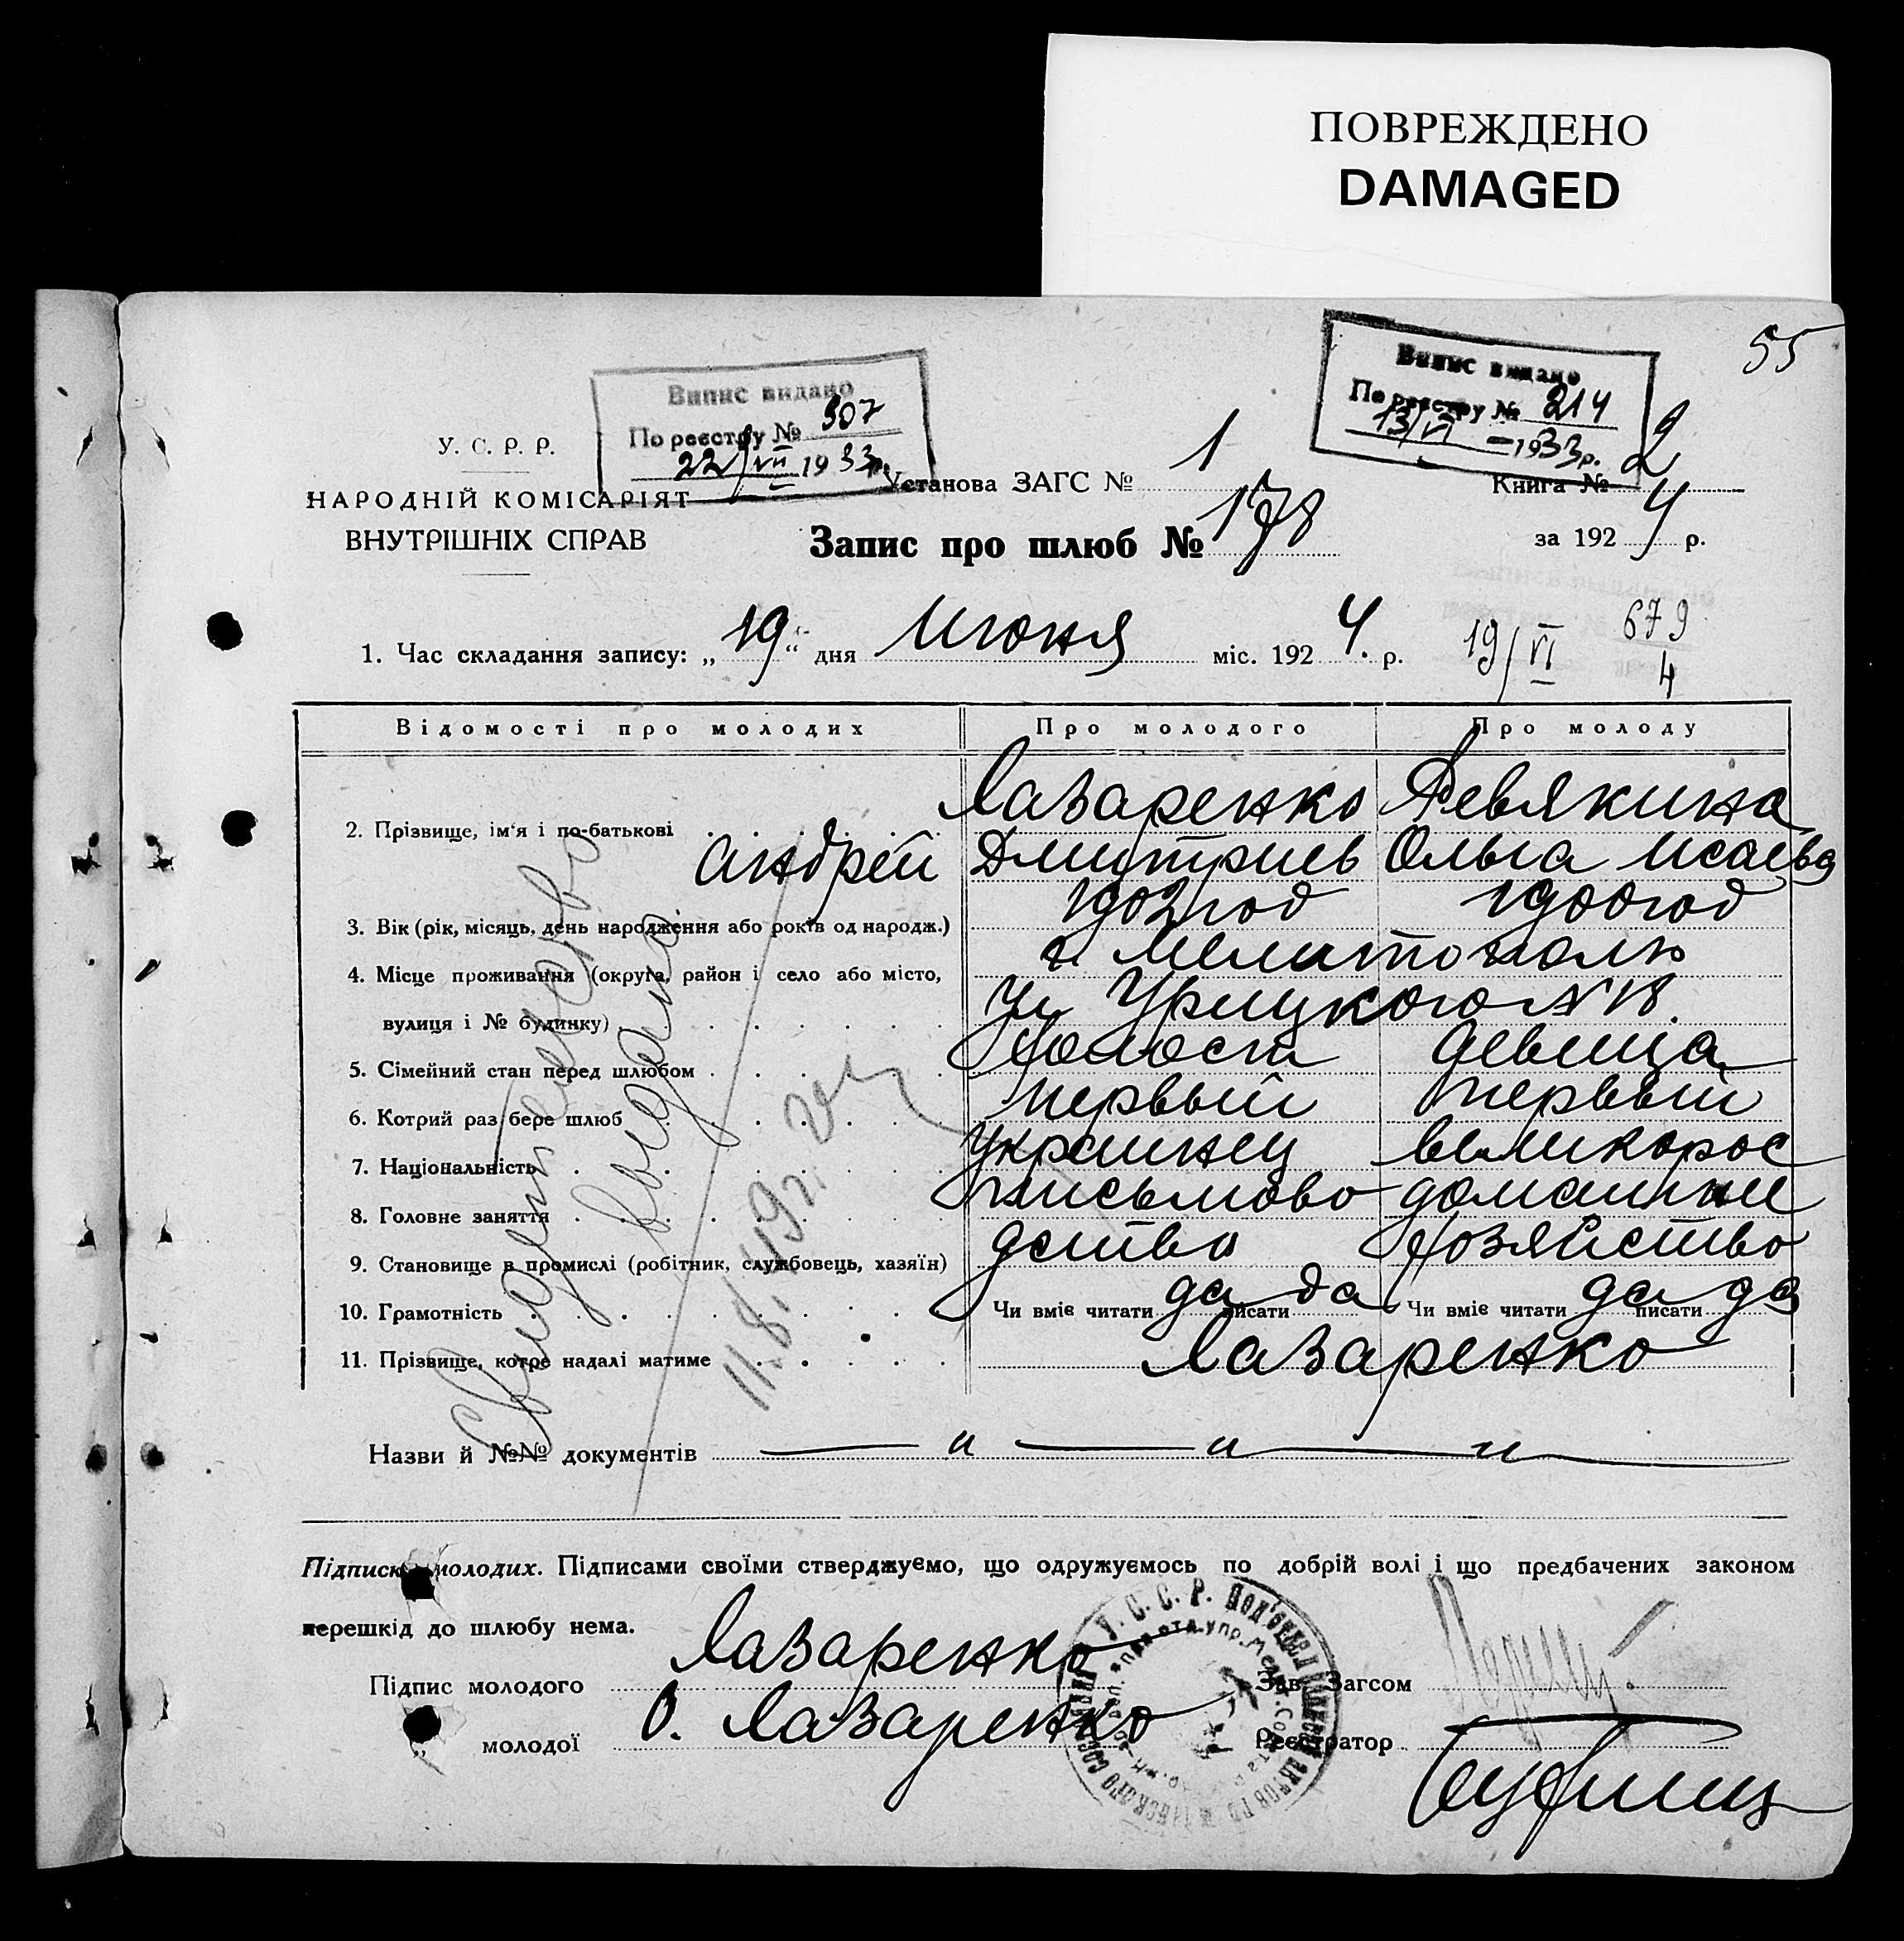 ПОВРЕЖДЕНО
DAMAGED
55
Випис видано
По реєстру № 307
22/VII 1933р.
Випис видано
По реєстру № 214
13/VI – 1933р.
У. С. Р. Р.
НАРОДНІЙ КОМІСАРІЯТ
ВНУТРІШНІХ СПРАВ
Установа ЗАГС № 1
Книга № 2
Запис про шлюб № 178
за 1924 р.
1. Час складання запису: „19“ дня Июня міс. 1924. р.
19/VI
679
4
Відомості про молодих
Про молодого
Про молоду
2. Прізвище, ім'я і по-батькові
Лазаренко
Андрей Дмитриев
Ревякина
Ольга Исаева
3. Вік (рік, місяць, день народження або років од народж.) 1902 год 1900 год
4. Місце проживання (округа, район і село або місто, г. Мелитополь
вулиця і № будинку) Ул Урицкого № 18.
5. Сімейний стан перед шлюбом Холост девица
6. Котрий раз бере шлюб первый первый
7. Національність Украинец великорос
8. Головне заняття письмово домашнее
9. Становище в промислі (робітник, службовець, хазяїн) дство хозяйство
10. Грамотність Чи вміє читати да писати да Чи вміє читати да писати да
11. Прізвище, котре надалі матиме Лазаренко
Свидетельство
выдано
11.8.49г.
Назви й №№ документів — „ — „ — „
Підписи молодих. Підписами своїми стверджуємо, що одружуємось по добрій волі і що предбачених законом
перешкід до шлюбу нема.
Підпис молодого Лазаренко
Зав. Загсом
„ молодої О. Лазаренко
Реєстратор
У. С. С. Р.